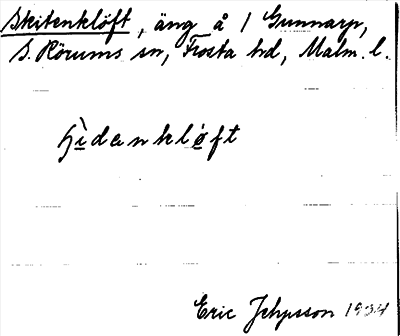 Skitenklöft, äng å 1 Gunnarp,
S. Rörums sn, Frosta hd, Malm. l.
hìdenkløft
Eric 1934